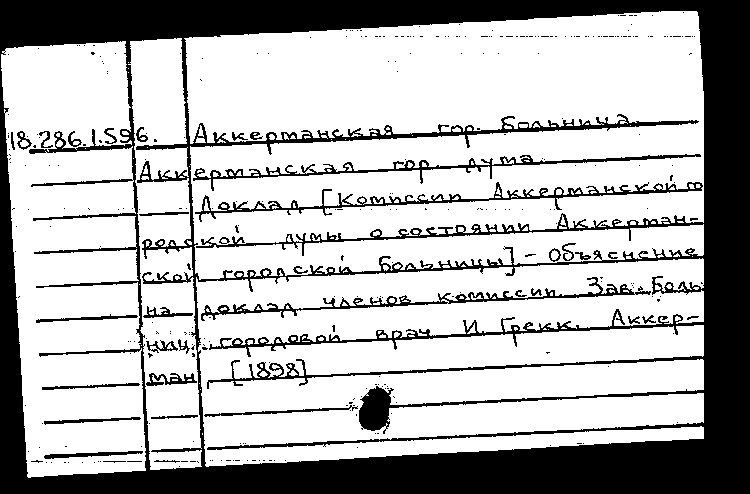 18.286.1.596. Аккерманская гор. больница.
Аккерманская гор. дума
Доклад [Комиссии Аккерманской го
родской думы о состоянии Аккерман-
ской городской больницы] - Объяснение
на доклад членов комиссии Зав. боль
ниц. городовой врач И. Грекк. Аккер-
ман, [1898]